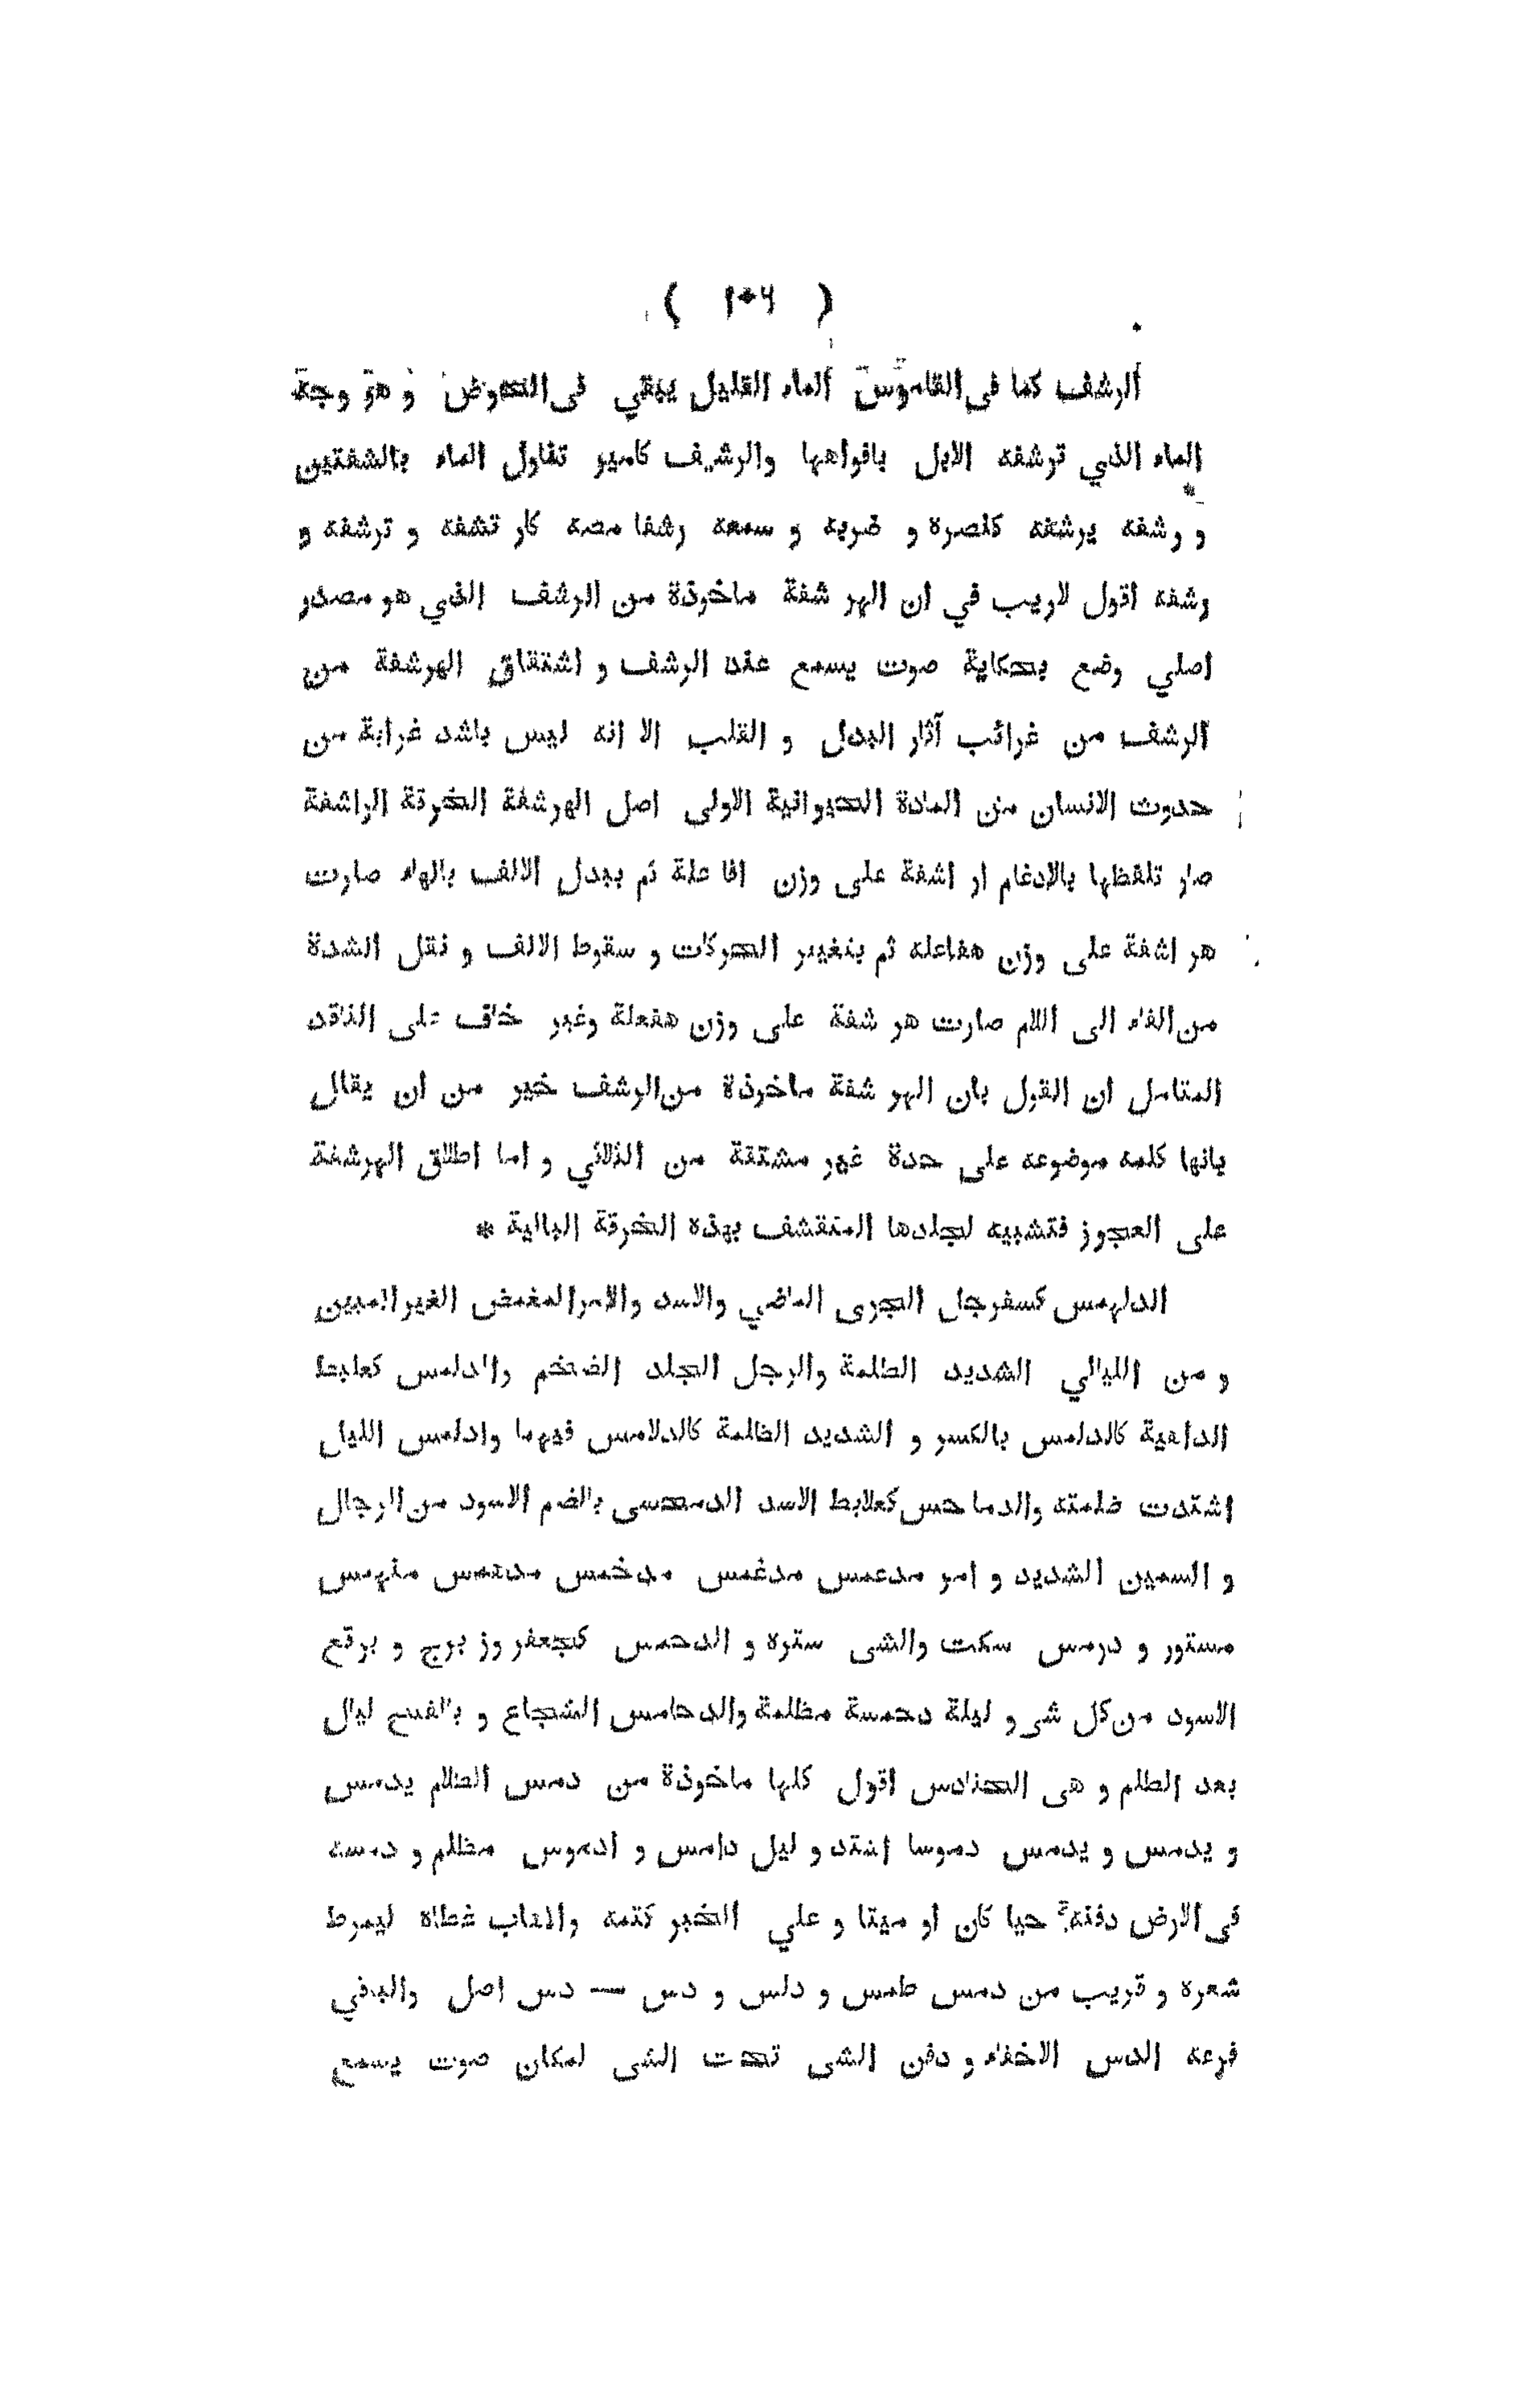 ( ۱۰۶ )
الرشف كما فى القاموس الماء القليل يبقي فى الحوض و هو وجة
الماء الذي ترشفه الابل بافواهها والرشيف كامير تناول الماء بالشفتين
و رشفه يرشفه كنصره و ضربه و سمعه رشفا مصه كار تشفه و ترشفه و
رشفه اقول لاريب في ان الهر شفة ماخوذة من الرشف الذي هو مصدر
اصلي وضع بحكاية صوت يسمع عند الرشف و اشتقاق الهرشفة من
الرشف من غرائب آثار البدل و القلب الا انه ليس باشد غرابة من
حدوث الانسان من المادة الحيوانية الاولى اصل الهرشفة الخرقة الراشفة
صار تلفظها بالادغام ار اشفة على وزن افا علة ثم ببدل الالف بالهاء صارت
هر اشفة على وزن هفاعله ثم بتغيير الحركات و سقوط الالف و نقل الشدة
من الفاء الى اللام صارت هر شفة على وزن هفعلة وغير خاف على الناقد
المتامل ان القول بان الهر شفة ماخوذة من الرشف خير من ان يقال
بانها كلمه موضوعه على حدة غير مشتقة من الثلاثي و اما اطلاق الهرشفة
على العجوز فتشبيه لجلدها المتقشف بهذه الخرقة البالية *
الدلهمس كسفرجل الجرى الماضي والاسد والامر المغمض الغير المبين
و من الليالي الشديد الظلمة والرجل الجلد الضخم والدلمس كعلبط
الداهية كالدلمس بالكسر و الشديد الظلمة كالدلامس فيهما وادلمس الليل
اشتدت ظلمته والدما حس كعلابط الاسد الدمحسى بالضم الاسود من الرجال
و السمين الشديد و امر مدعمس مدغمس مدخمس مدهمس منهمس
مستور و درمس سكت والشى ستره و الدحمس كجعفر وز برج و برقع
الاسود من كل شى و ليلة دحمسة مظلمة والدحامس الشجاع و بالفتح ليال
بعد الظلم و هى الحنادس اقول كلها ماخوذة من دمس الظلام يدمس
و يدمس و يدمس دموسا اشتد و ليل دامس و ادموس مظلم و دمسه
فى الارض دفنه حيا كان او ميتا و علي الخبر كتمه والاهاب غطاه ليمرط
شعره و قريب من دمس طمس و دلس و دس — دس اصل والباقي
فرعه الدس الاخفاء و دفن الشى تحت الشى لمكان صوت يسمع